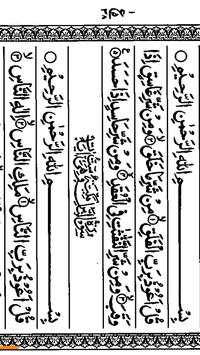 بِسْمِ اللهِ الرَّحْمٰنِ الرَّحِيْمِ
قُلْ اَعُوْذُ بِرَبِّ الْفَلَقِ ۙ۱ مِنْ شَرِّ مَا خَلَقَ ۙ۲ وَمِنْ شَرِّ غَاسِقٍ اِذَا
وَقَبَ ۙ۳ وَمِنْ شَرِّ النَّفّٰثٰتِ فِي الْعُقَدِ ۙ۴ وَمِنْ شَرِّ حَاسِدٍ اِذَا حَسَدَ ۵
بِسْمِ اللهِ الرَّحْمٰنِ الرَّحِيْمِ
قُلْ اَعُوْذُ بِرَبِّ النَّاسِ ۙ۱ مَلِكِ النَّاسِ ۙ۲ اِلٰهِ النَّاسِ ۙ۳